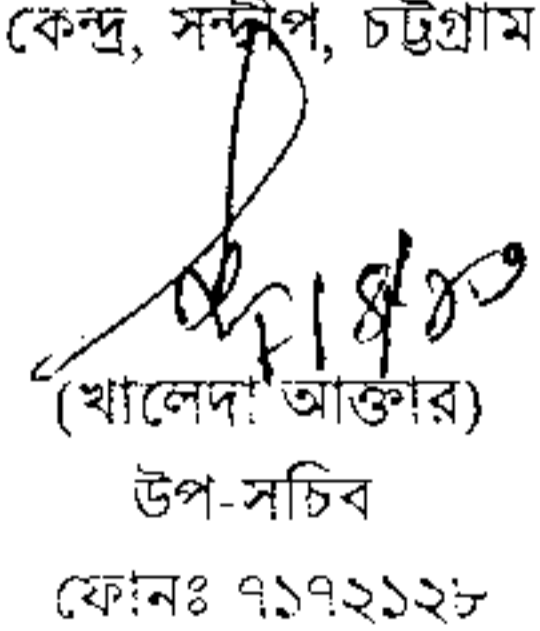 কেন্দ্র, সন্দ্বীপ, চট্টগ্রাম
(খালেদা আক্তার)
উপ-সচিব
ফোনঃ ৭১৭২১২৮